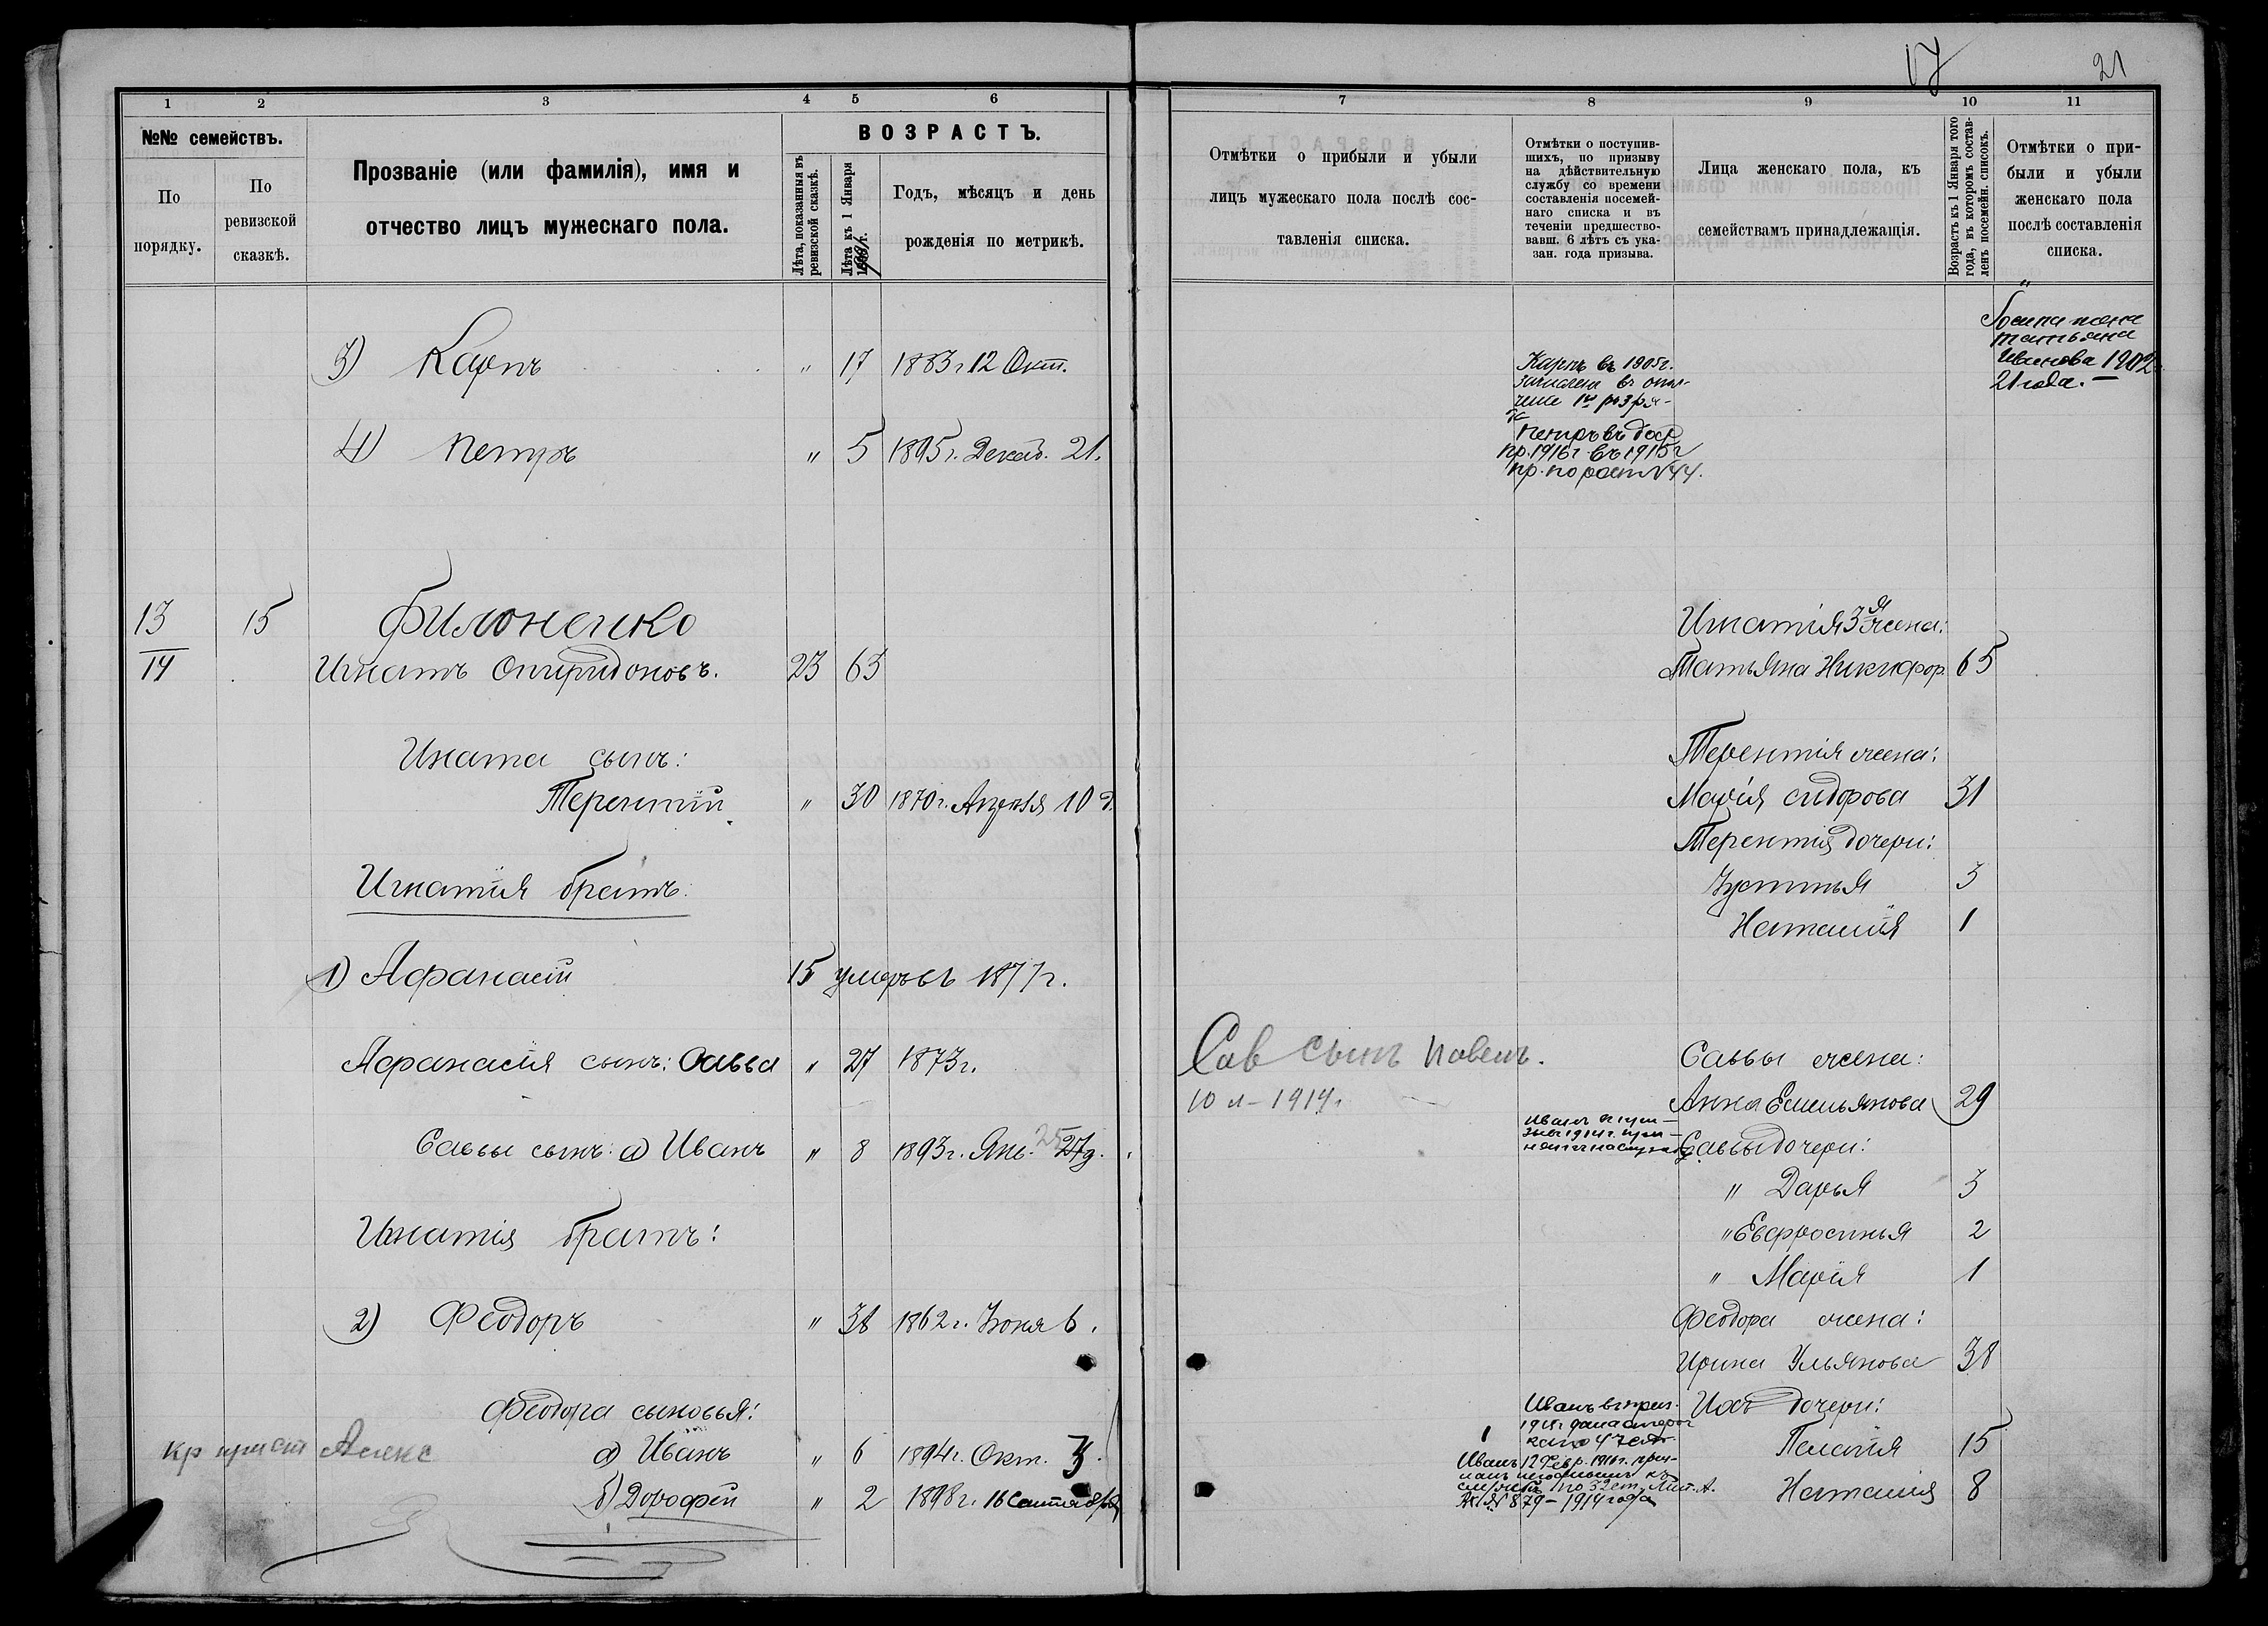 17 21
1 2 3 4 5 6
№№ семействъ.
По порядку.
По ревизской сказкѣ.
Прозваніе (или фамилія), имя и
отчество лицъ мужескаго пола.
ВОЗРАСТЪ.
Лѣта, показанныя въ
ревизской сказкѣ.
Лѣта къ 1 Января
Годъ, мѣсяцъ и день
рожденія по метрикѣ.
3) Карпъ " 17 1883 г. 12 Окт.
4) Петръ " 5 1895 г. Декаб. 21.
13 15 Филоненко
14 Игнатъ Спиридоновъ. 23 63
Игната сынъ:
Терентій " 30 1870 г. Апрѣля 10 д.
Игнатія братъ:
1) Афанасій 15 умеръ въ 1877 г.
Афанасія сынъ: Савва " 27 1873 г.
Саввы сынъ: а) Иванъ " 8 1893 г. Янв. 25 27 д.
Игнатія братъ:
2) Феодоръ " 38 1862 г. Іюня 6.
Феодора сыновья:
кр прист Алекс а) Иванъ " 6 1894 г. Окт. 3.
б) Дорофей " 2 1898 г. 16 Сентября
7 8 9 10 11
Отмѣтки о прибыли и убыли
лицъ мужескаго пола послѣ сос-
тавленія списка.
Отмѣтки о поступив-
шихъ, по призыву
на дѣйствительную
службу со времени
составленія посемей-
наго списка и въ
теченіи предшество-
вавш. 6 лѣтъ съ ука-
зан. года призыва.
Лица женскаго пола, къ
семействамъ принадлежащія.
Возрастъ къ 1 Января того
года, въ которомъ состав-
ленъ посемейн. списокъ.
Отмѣтки о при-
были и убыли
женскаго пола
послѣ составленія
списка.
"
жена
татьяна
Иванова 1902
21 года. —
Карпъ въ 1905 г.
зачисленъ въ опол-
ченіе 1го разря-
да
Петръ въ
пр. 1916 г. въ 1915 г
пр. по
Игнатія 3я жена:
Татьяна Никифор. 65
Терентія жена:
Марія Сидорова 31
Терентія дочери:
Устинья 3
Наталія 1
Сав сынъ Павелъ.
10 л – 1914 г.
Саввы жена:
Анна Емельянова 29
Иванъ
1914 г. при-
нятъ на службу
Саввы дочери:
" Дарья 3
" Евфросинья 2
" Марія 1
Феодора жена:
Ирина Ульянова 38
Ихъ дочери:
Пелагія 15
Наталія 8
Иванъ въ
Иванъ 12 Февр. 1916 г. приз-
нанъ негоднымъ къ
службѣ по 32 ст. Лит. А.
№ 879 – 1914 года